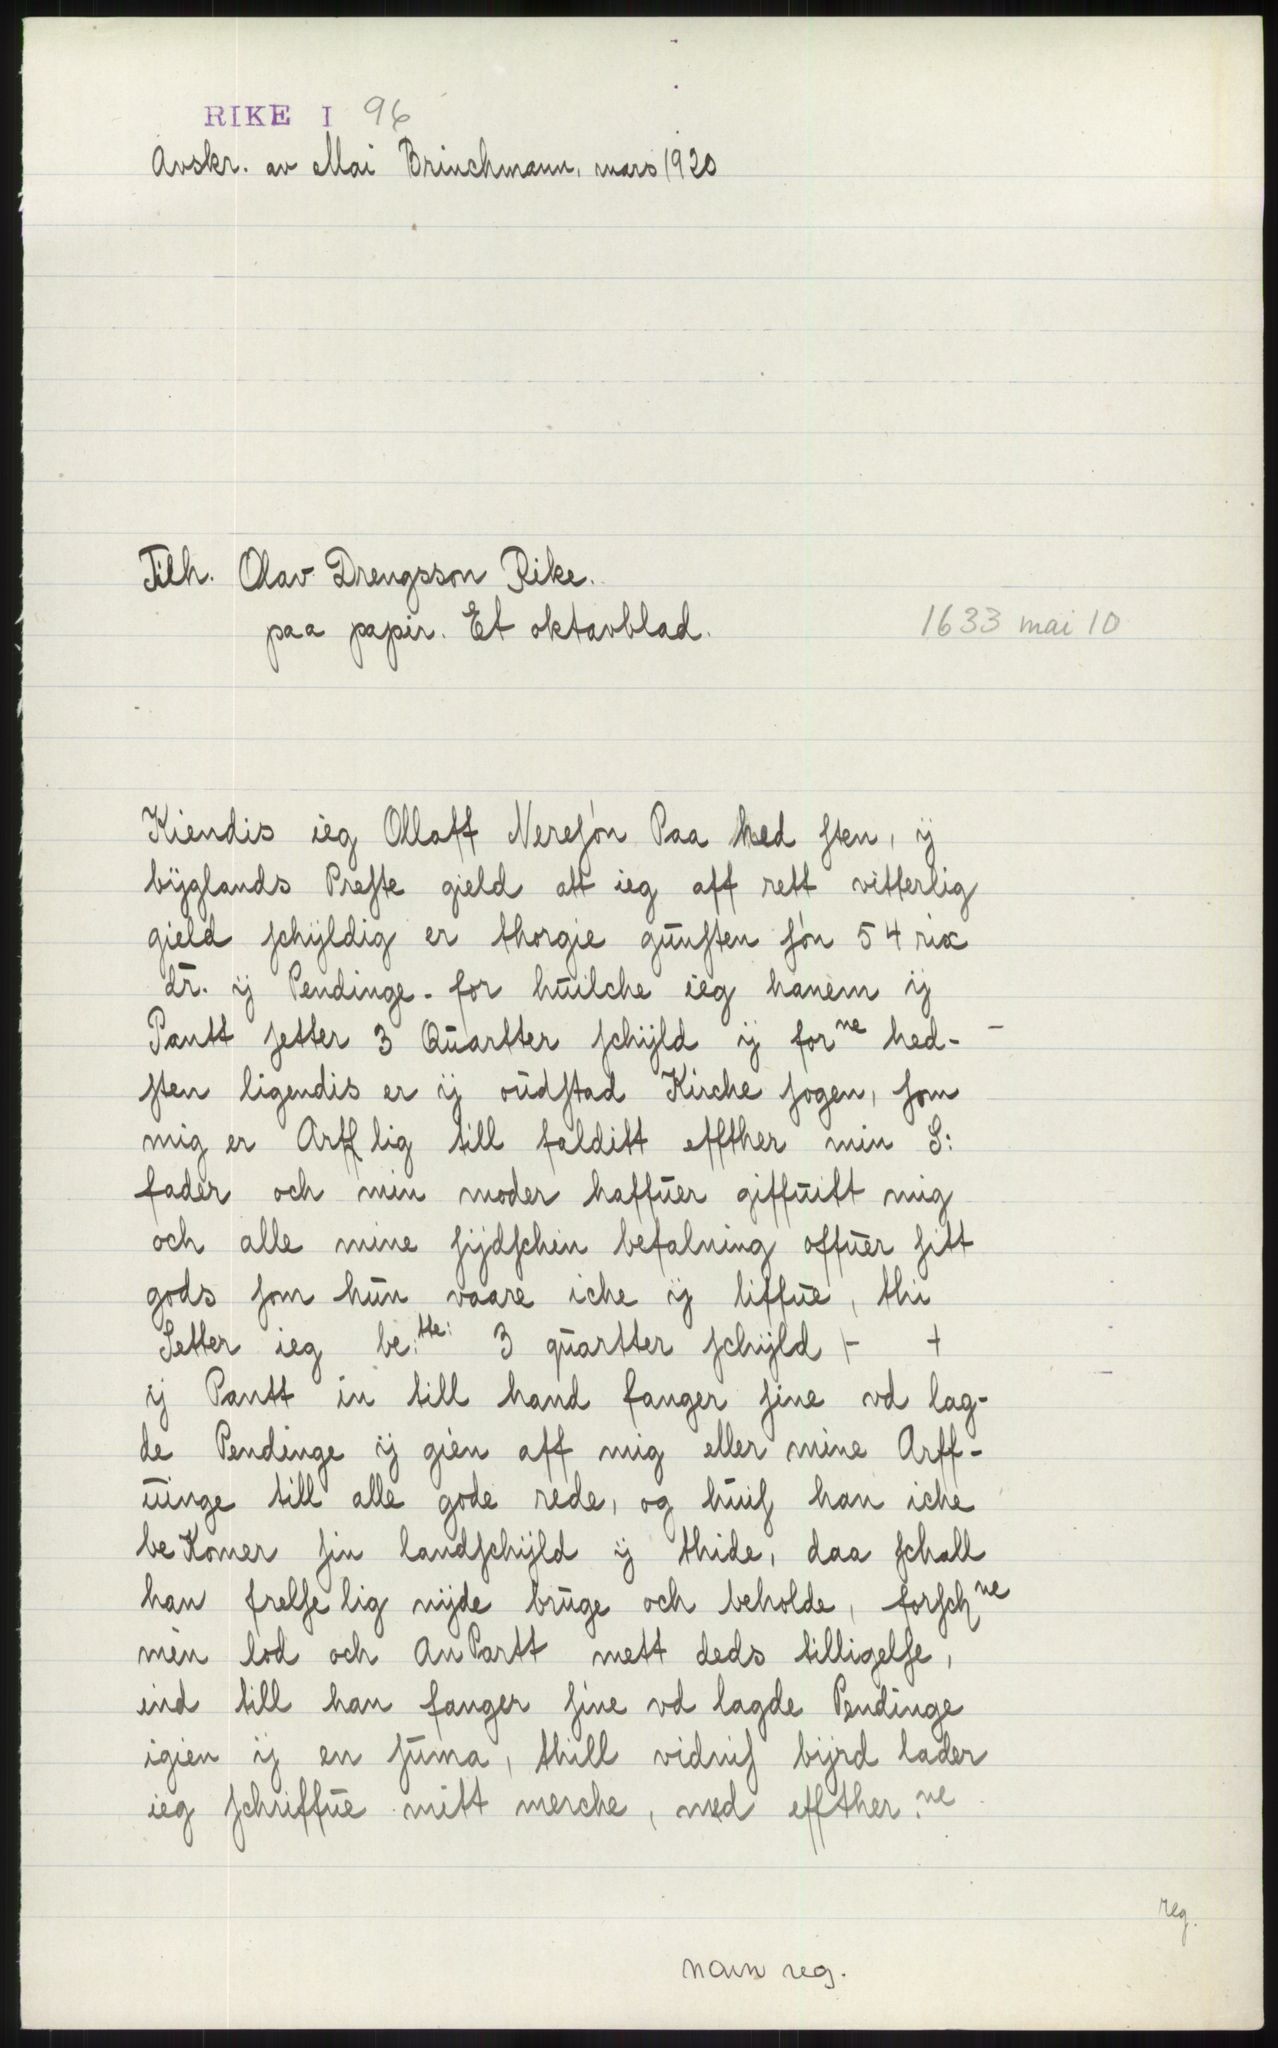 RIKE I 96
Avskr. av Mai Brinchmann, mars 1920
Tilh. Olav Drengsson Rike.
paa papir. Et oktavblad.
1633 mai 10
Kiendis ieg Ollaff Neresøn Paa hed sten, ÿ
bÿglands Preste gield att ieg aff rett vitterlig
gield schÿldig er thorgie gunsten søn 54 rix
dr. ÿ Pendinge - for huilche ieg hanem ÿ
Pantt setter 3 Quartter schÿld ÿ for ne hed- -
sten ligendis er ÿ oudstad Kirche sogen, som
mig er Arff lig till falditt effther min S:
fader och min moder haffuer giffuitt mig
och alle mine sÿdschen befalning offuer sitt
gods som hun vaare iche ÿ liffue, thi
Setter ieg be: tte: 3 quartter schÿld ÷ +
ÿ Pantt in till hand fanger sine vd lag-
de Pendinge ÿ gien aff mig eller mine Arff-
uinge till alle gode rede, og huis han iche
be Komer sin landschÿld ÿ thide, daa schall
han frelse lig nÿde bruge och beholde, forsch ne
min lod och An Partt mett deds tilligelse,
ind till han fanger sine vd lagde Pendinge
igien ÿ en suma, thill vidnis bÿrd lader
ieg schriffue mitt merche, ned effther: ne
reg.
navn reg.